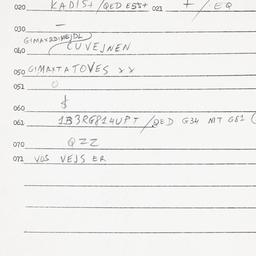 020 KADIS+ /QED ESS+ 021 + / EQ
030 —
GIMAX22INEJDL
040 CUVEJNEN
050 GIMAXTATOVES xx
051 0
$
060
061 1B3RG814UPT /QED G34 MT GE1 (
070 QZZ
071 VOS VEJS ER